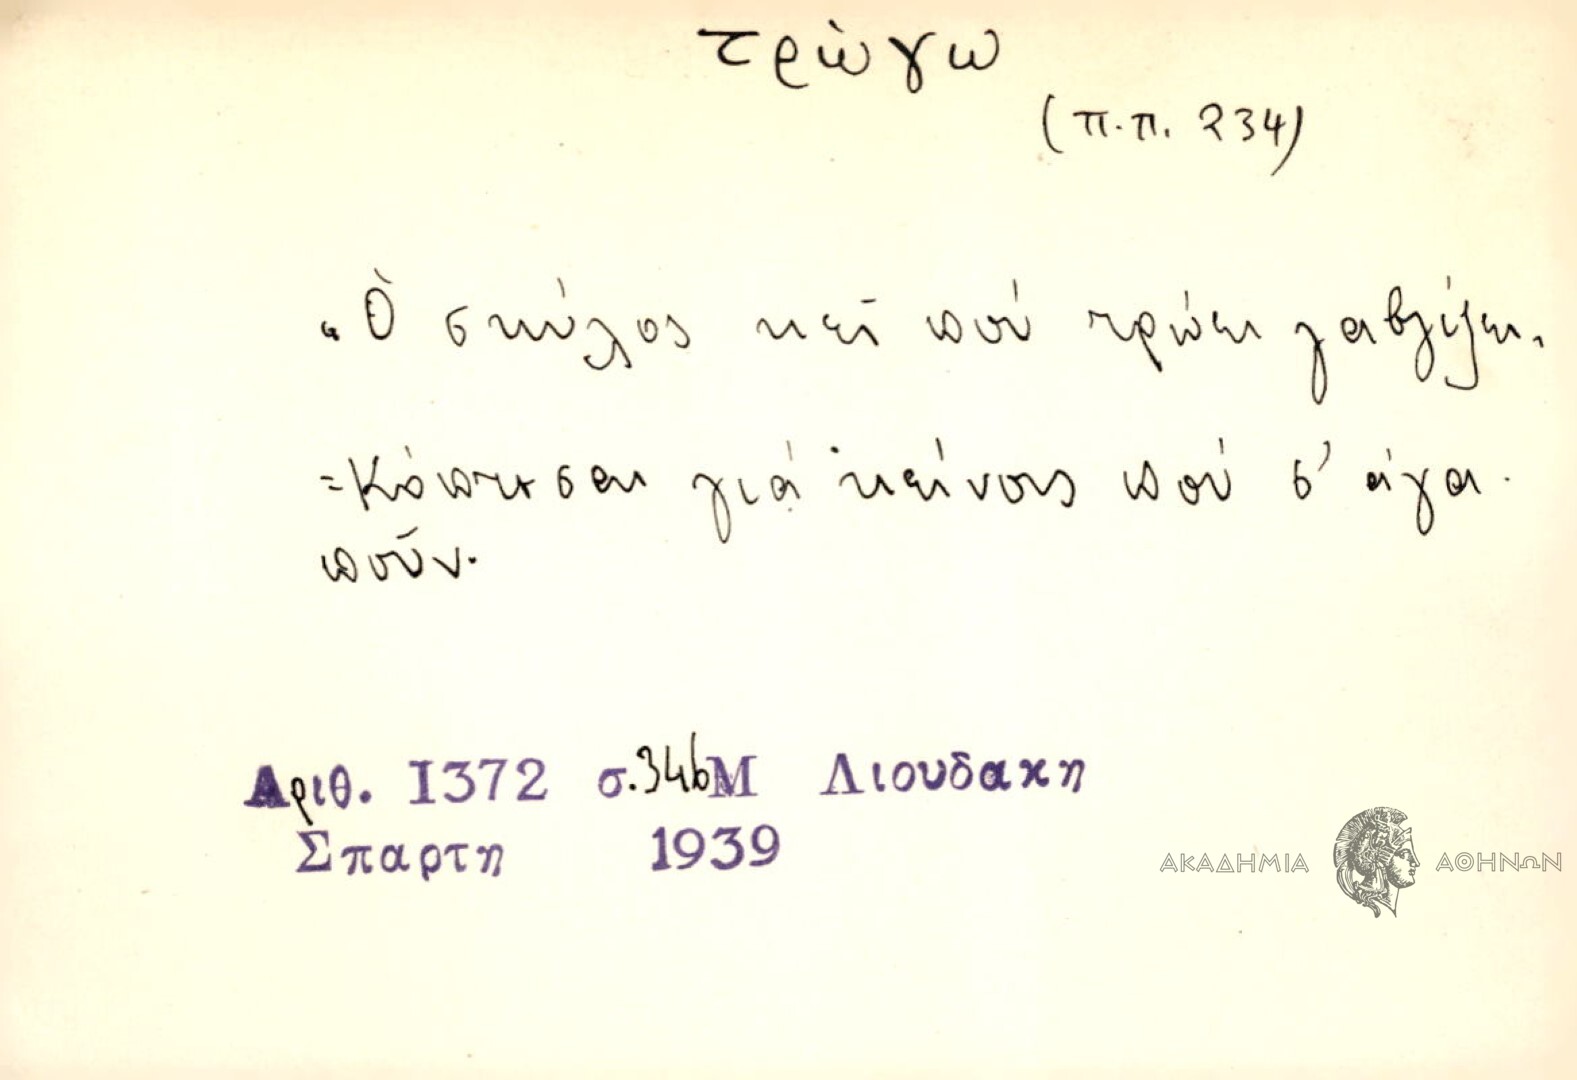 τρώγω
(π.π. 234)
"Ὁ σκύλος κεῖ ποὺ τρώει γαβγίζει,
=Κόπτεσαι γιὰ κείνους ποὺ σ' ἀγα-
ποῦν.
Αριθ. 1372 σ.346 Μ Λιουδακη
Σπαρτη 1939
ΑΚΑΔΗΜΙΑ ΑΘΗΝΩΝ